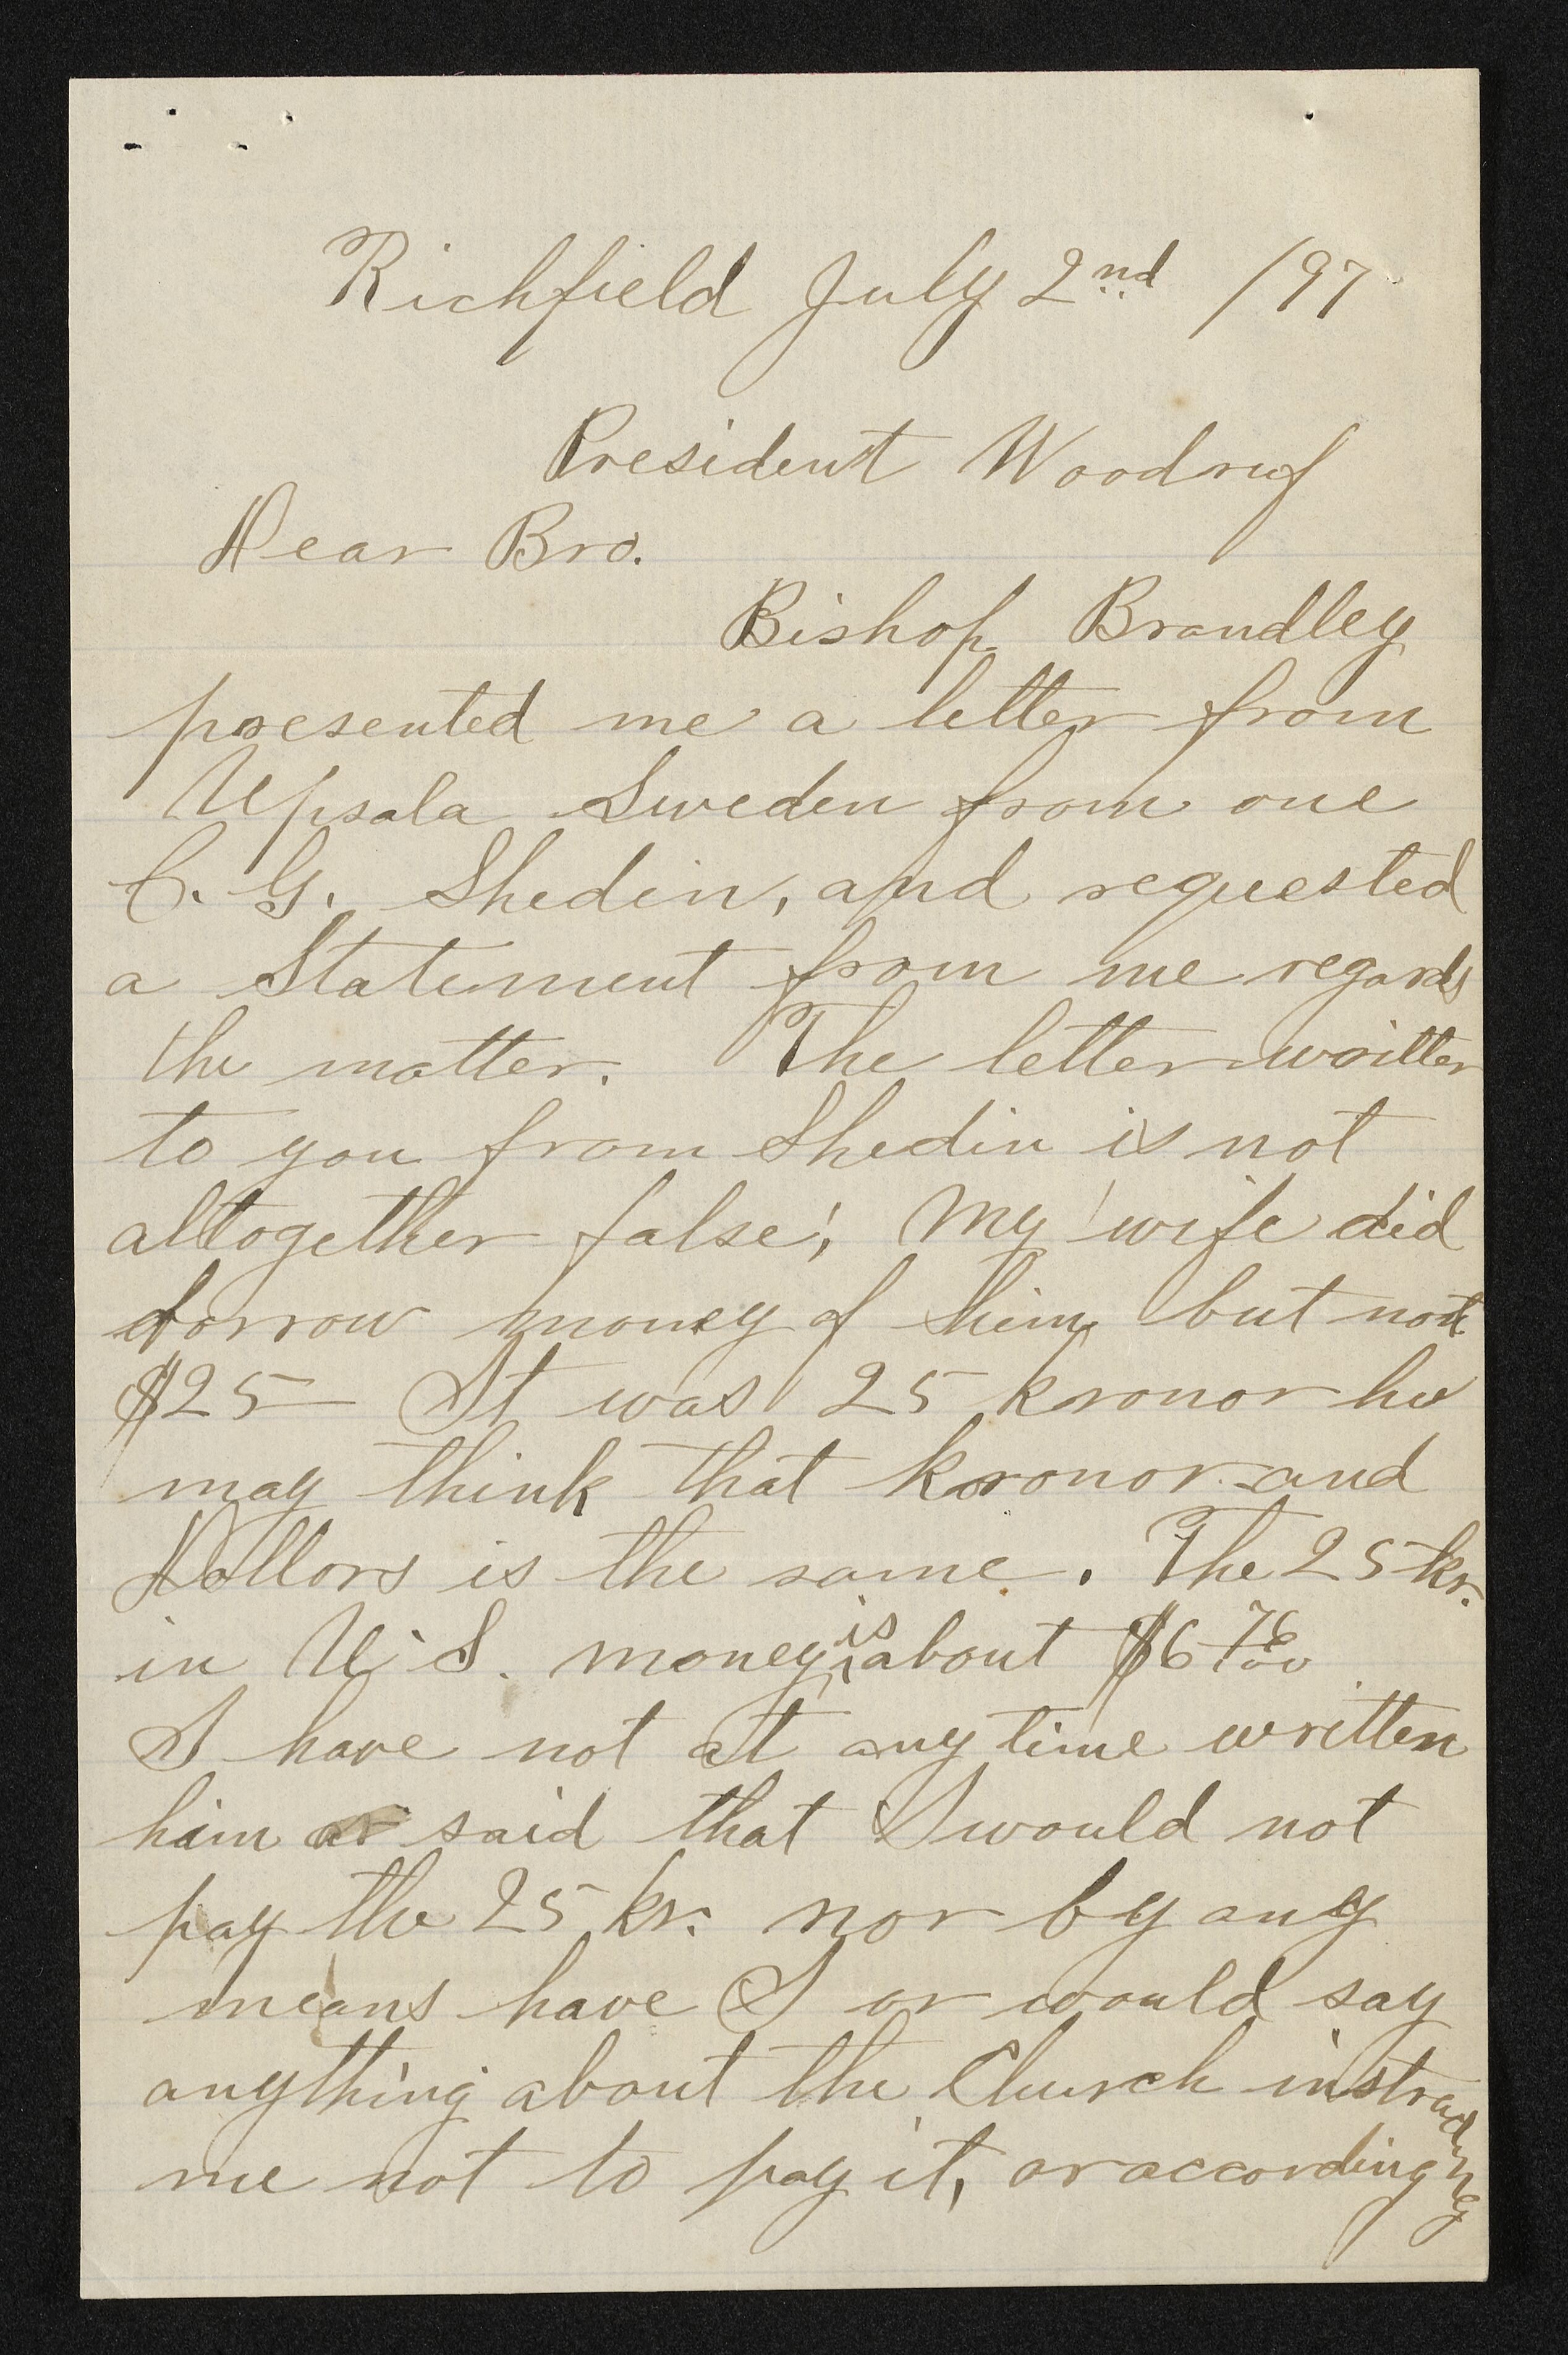 Richfield July 2nd /97
President Woodruf
Dear Bro.
Bishop Brandley
presented me a letter from
Upsala Sweden from one
C. G. Shedin, and requested
a Statement from me regards
the matter. The letter written
to you from Shedin is not
altogether false; My wife did
borrow money of him, but not
$25— It was 25 kronor he
may think that kronor and
Dollors is the same. The 25 kr.
in U.S. money is about $6 76/100
I have not at any time written
him or said that I would not
pay the 25 kr. nor by any
means have I or would say
anything about the Church instructing
me not to pay it, or according